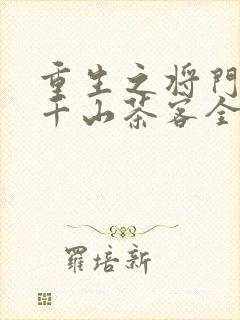 重生之将門
千山茶客全
羅培新